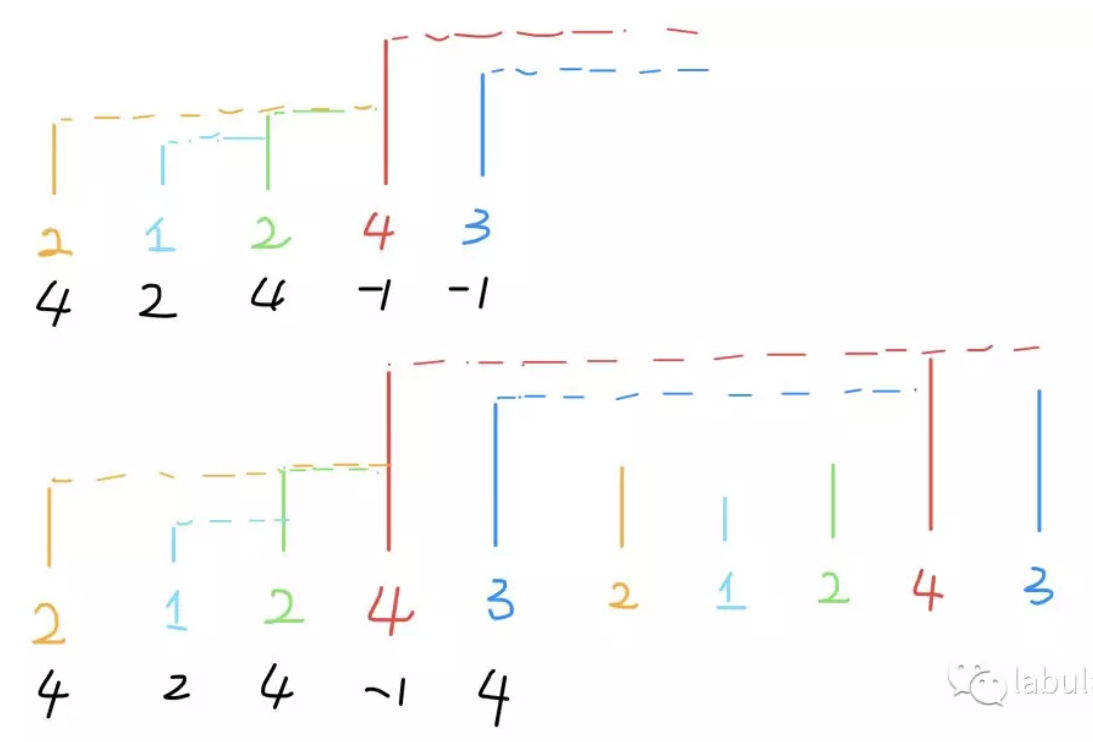 2 1 2 4 3
4 2 4 -1 -1
2 1 2 4 3 2 1 2 4 3
4 2 4 -1 4
labula